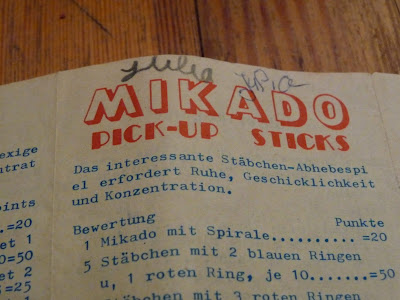 Julia
MIKADO
PICK-UP STICKS
Das interessante Stäbchen-Abhebespi
el erfordert Ruhe, Geschicklichkeit
und Konzentration.
Bewertung Punkte
1 Mikado mit Spirale.......... =20
5 Stäbchen mit 2 blauen Ringen
u, 1 roten Ring, je 10.......=50
Stäbchen mit 3 roten Ringen
exige
utrat
oints
.=20
et 1
0=50
et 2
=25